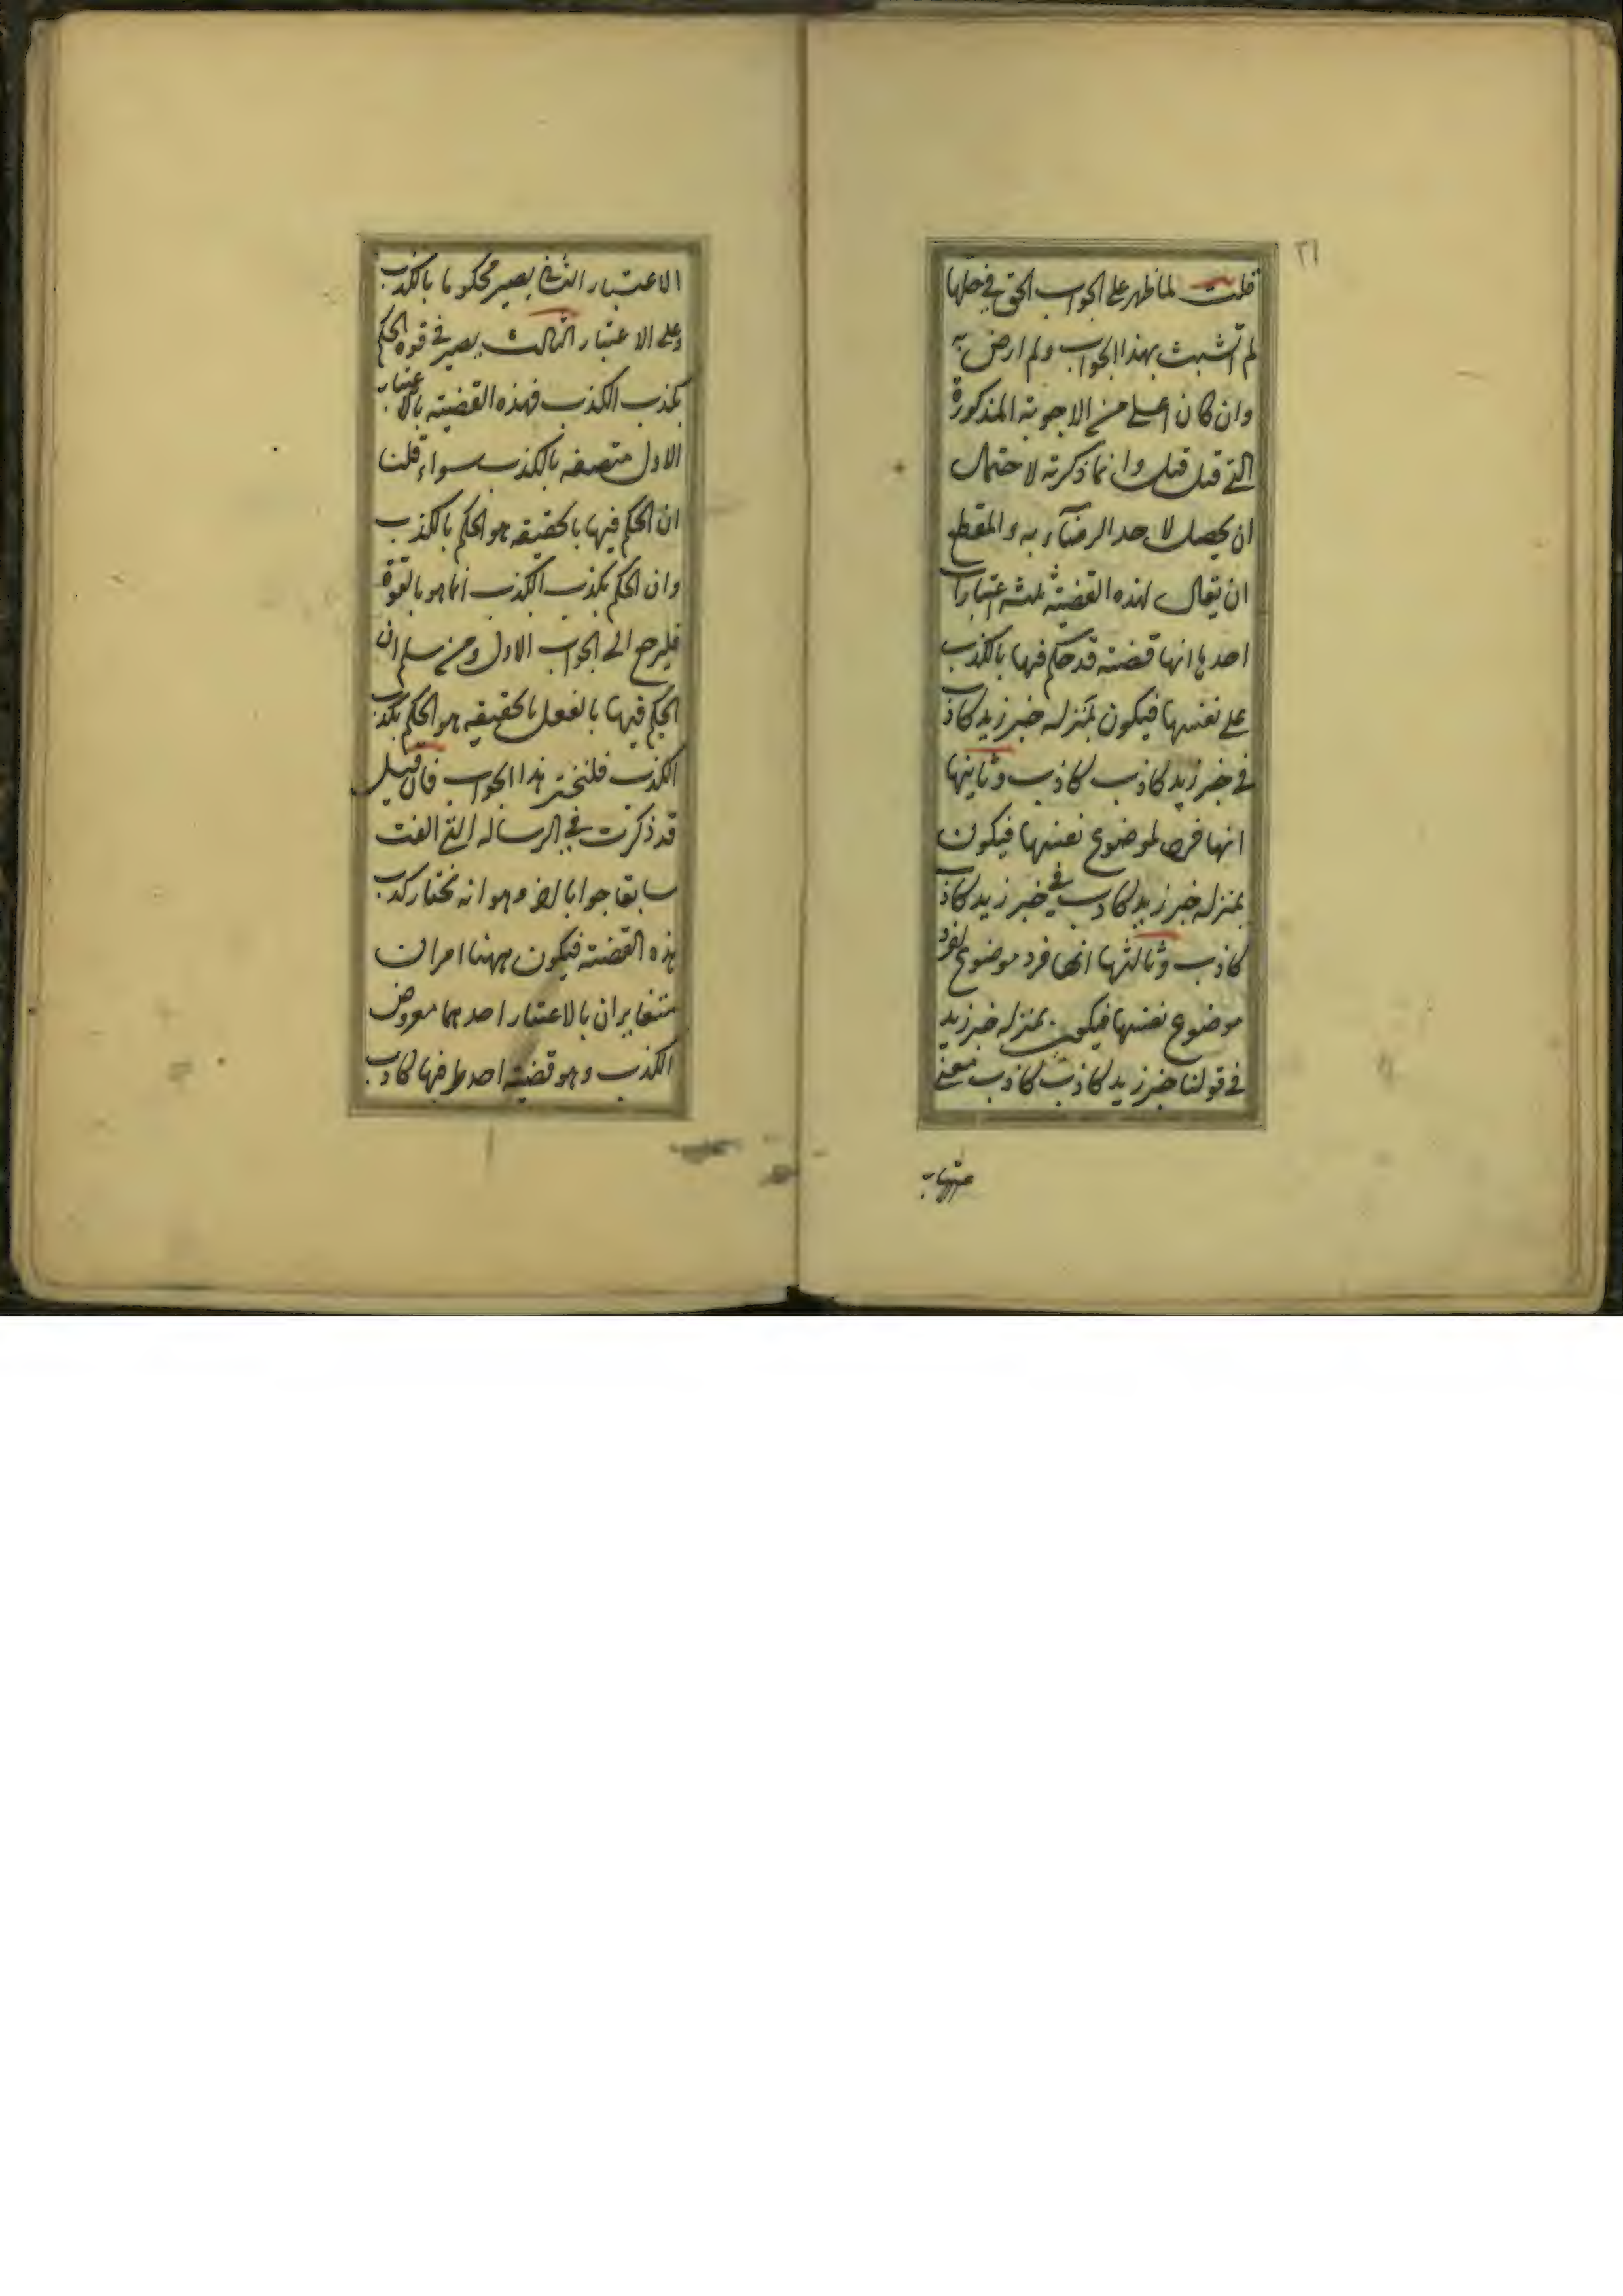 ٢١
قلت لما ظهر على الجواب الحق في حلها
لم اتشبث بهذا الجواب ولم ارض به
وان كان اعلى من الاجوبة المذكورة
التي قبل قبل وانما ذكرته لاحتمال
ان يحصل لاحد الرضاء به والمقطع
ان يقال لهذه القضية ثلثة اعتبارات
احدها انها قضية قد حكم فيها بالكذب
على نفسها فيكون بمنزلة خبر زيد كاذب
في خبر زيد كاذب كاذب وثانيها
انها فرد لموضوع نفسها فيكون
بمنزلة خبر زيد كاذب في خبر زيد كاذب
كاذب وثالثها انها فرد موضوع لفرد
موضوع نفسها فيكون بمنزلة خبر زيد
في قولنا خبر زيد كاذب كاذب فعلى
الاعتبار الثاني يصير محكوما بالكذب
وعلى الاعتبار الثالث يصير في قوة الحكم
بكذب الكذب فهذه القضية بالاعتبار
الاول متصفة بالكذب سواء قلت
ان الحكم فيها بالحقيقة هو الحكم بالكذب
وان الحكم بكذب الكذب انما هو بالقوة
فليرجع الى الجواب الاول ومن سلم ان
الحكم فيها بالفعل بالحقيقة هو الحكم بكذب
الكذب فلنختر هذا الجواب فان قيل
قد ذكرت في الرسالة التي الفت
سابقا جوابا اخر وهو انه نختار كذب
هذه القضية فيكون ههنا امران
متغايران بالاعتبار احدهما معروض
الكذب وهو قضية احد طرفيها كاذب